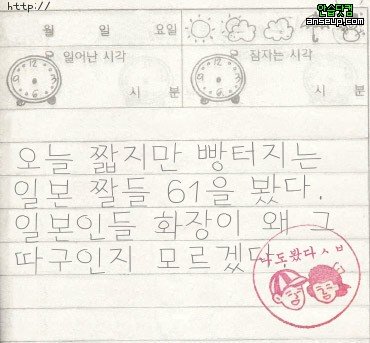 http://
안습닷컴
anseup.com
월 일 요일
일어난 시각
잠자는 시각
시 분
시 분
오늘 짧지만 빵터지는
일본 짤들 61을 봤다.
일본인들 화장이 왜 그
따구인지 모르겠다
나도봤다ㅅㅂ